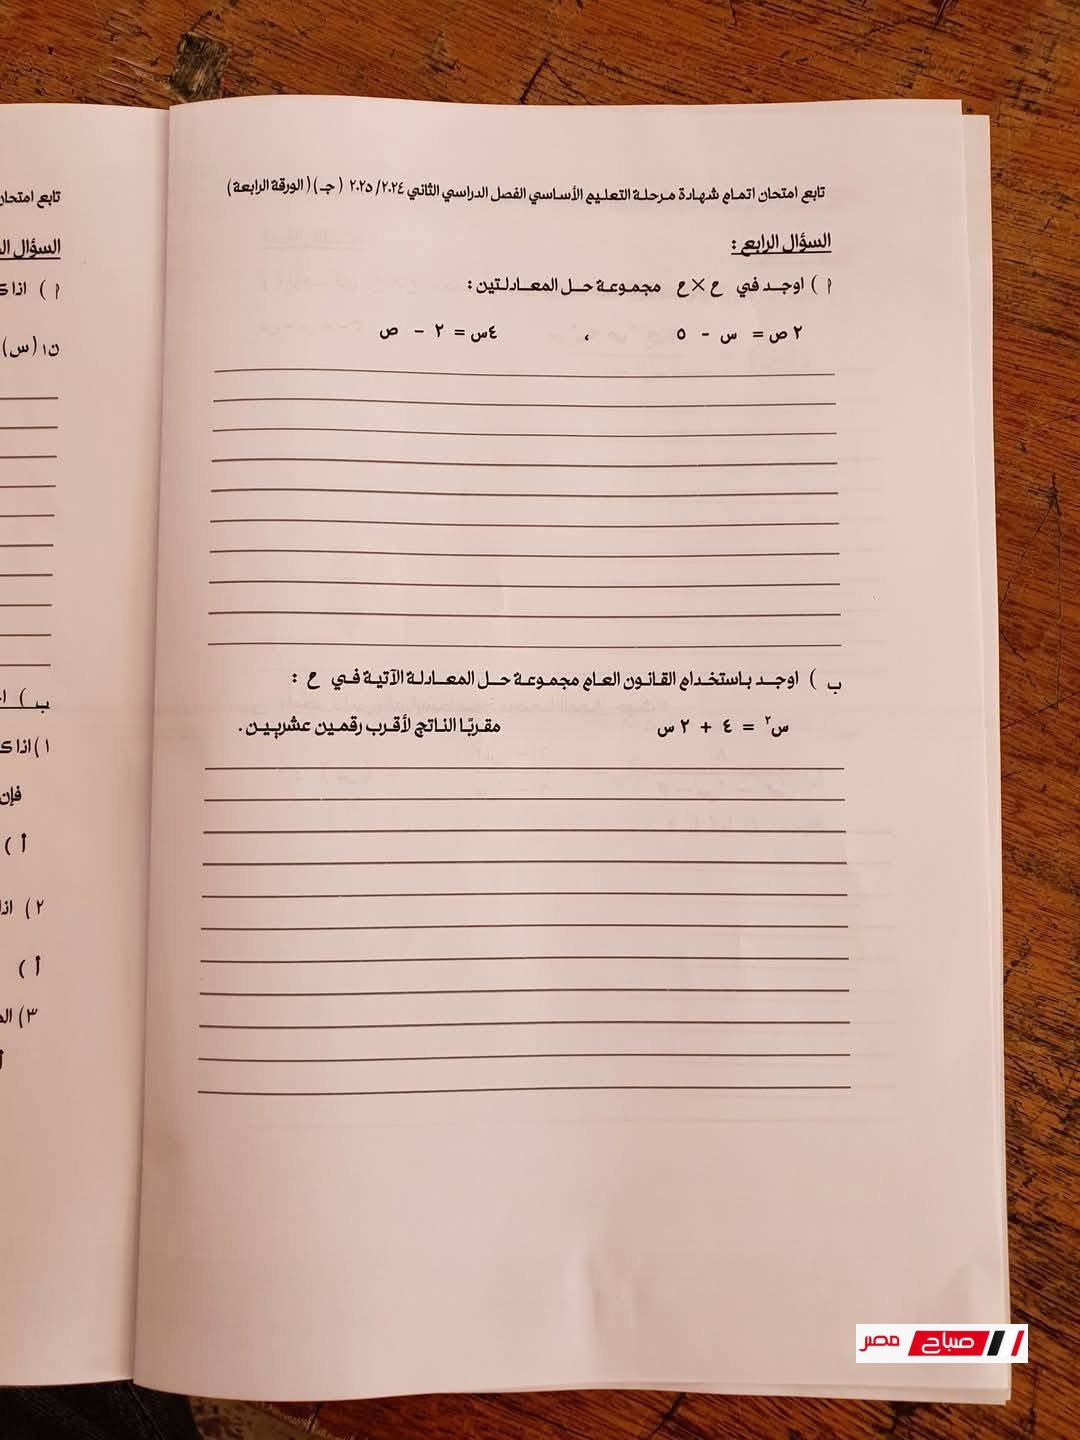 تابع امتحان اتمام شهادة مرحلة التعليم الأساسي الفصل الدراسي الثاني ٢٠٢٤/ ٢٠٢٥ ( جـ ) ( الورقة الرابعة )
السؤال الرابع :
أ ) اوجد في ح × ح مجموعة حل المعادلتين :
٢ ص = س - ٥ ، ٤س = ٢ - ص
ب ) اوجد باستخدام القانون العام مجموعة حل المعادلة الآتية في ح :
س٢ = ٤ + ٢ س مقربًا الناتج لأقرب رقمين عشريين .
تابع امتحان
السؤال
أ ) اذا
ن١ (س)
ب )
١) اذا
فإن
أ )
٢ ) اذا
أ )
٣)
صباح مصر